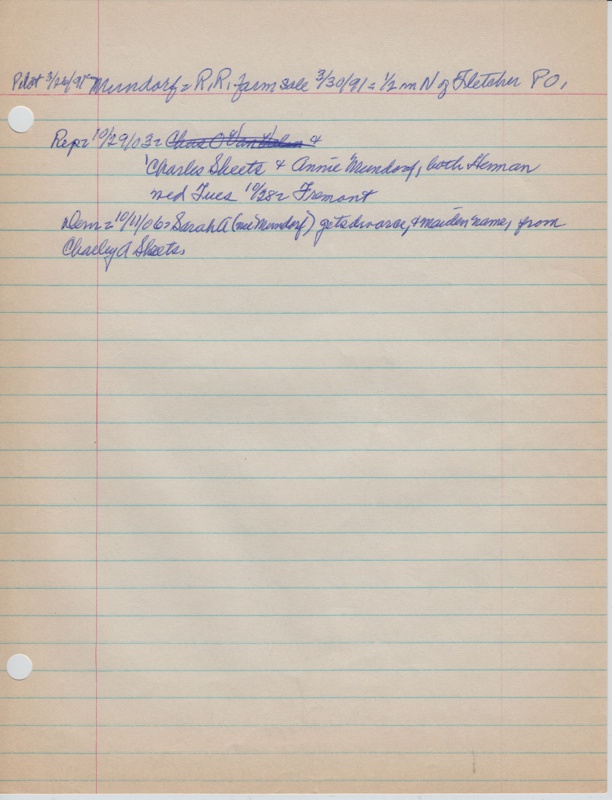 Pilot 3/26/91 Mundorf = R.R. farm sale 3/30/91 = 1/2 m N of Fletcher PO.
Rep = 10/29/03 = Chas O Van Holsen &
Charles Sheets & Annie Mundorf, both Herman
wed Tues 10/28 = Fremont
Dem = 10/11/06 = Sarah A (nee Mundorf) gets divorce, & maiden name, from
Charley A Sheets.